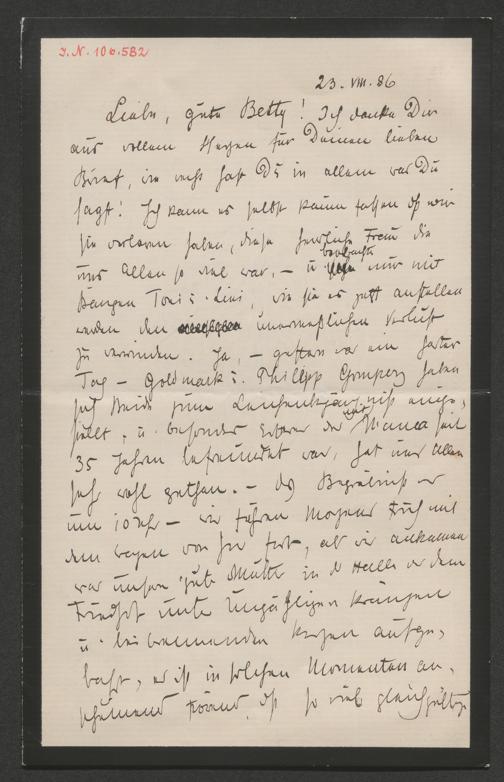 I.N. 106.582
23. VIII. 86
Liebe, gute Betty! Ich danke Dir
aus vollem Herzen für Deinen lieben
Brief, wie recht hast Du in allem was Du
sagst! Ich kann es selbst kaum fassen dß wir
sie verloren haben, diese herrliche Frau die
uns Allen so viel war, – u. beobachte nur mit
Bangen Toni u. Lini, wie sie es jetzt anstellen
werden den unermeßlichen Verlust
zu verwinden. Ja, – gestern war ein harter
Tag – Goldmark u. Philipp Gomperz haben
sich Beide zum Leichenbegängniß einge,
stellt, u. besonders Ersterer der mit Mama seit
35 Jahren befreundet war, hat uns Allen
sehr wohl gethan. – Das Begräbniß war
um 10 Uhr – wir fuhren Morgens Früh mit
dem Wagen von hier fort, als wir ankamen
war unsere gute Mutter in der Halle vor dem
Friedhof unter unzähligen Kränzen
u. bei brennenden Kerzen aufge,
bahrt, es ist in solchen Momenten an,
scheinend dß so viele gleichgültige